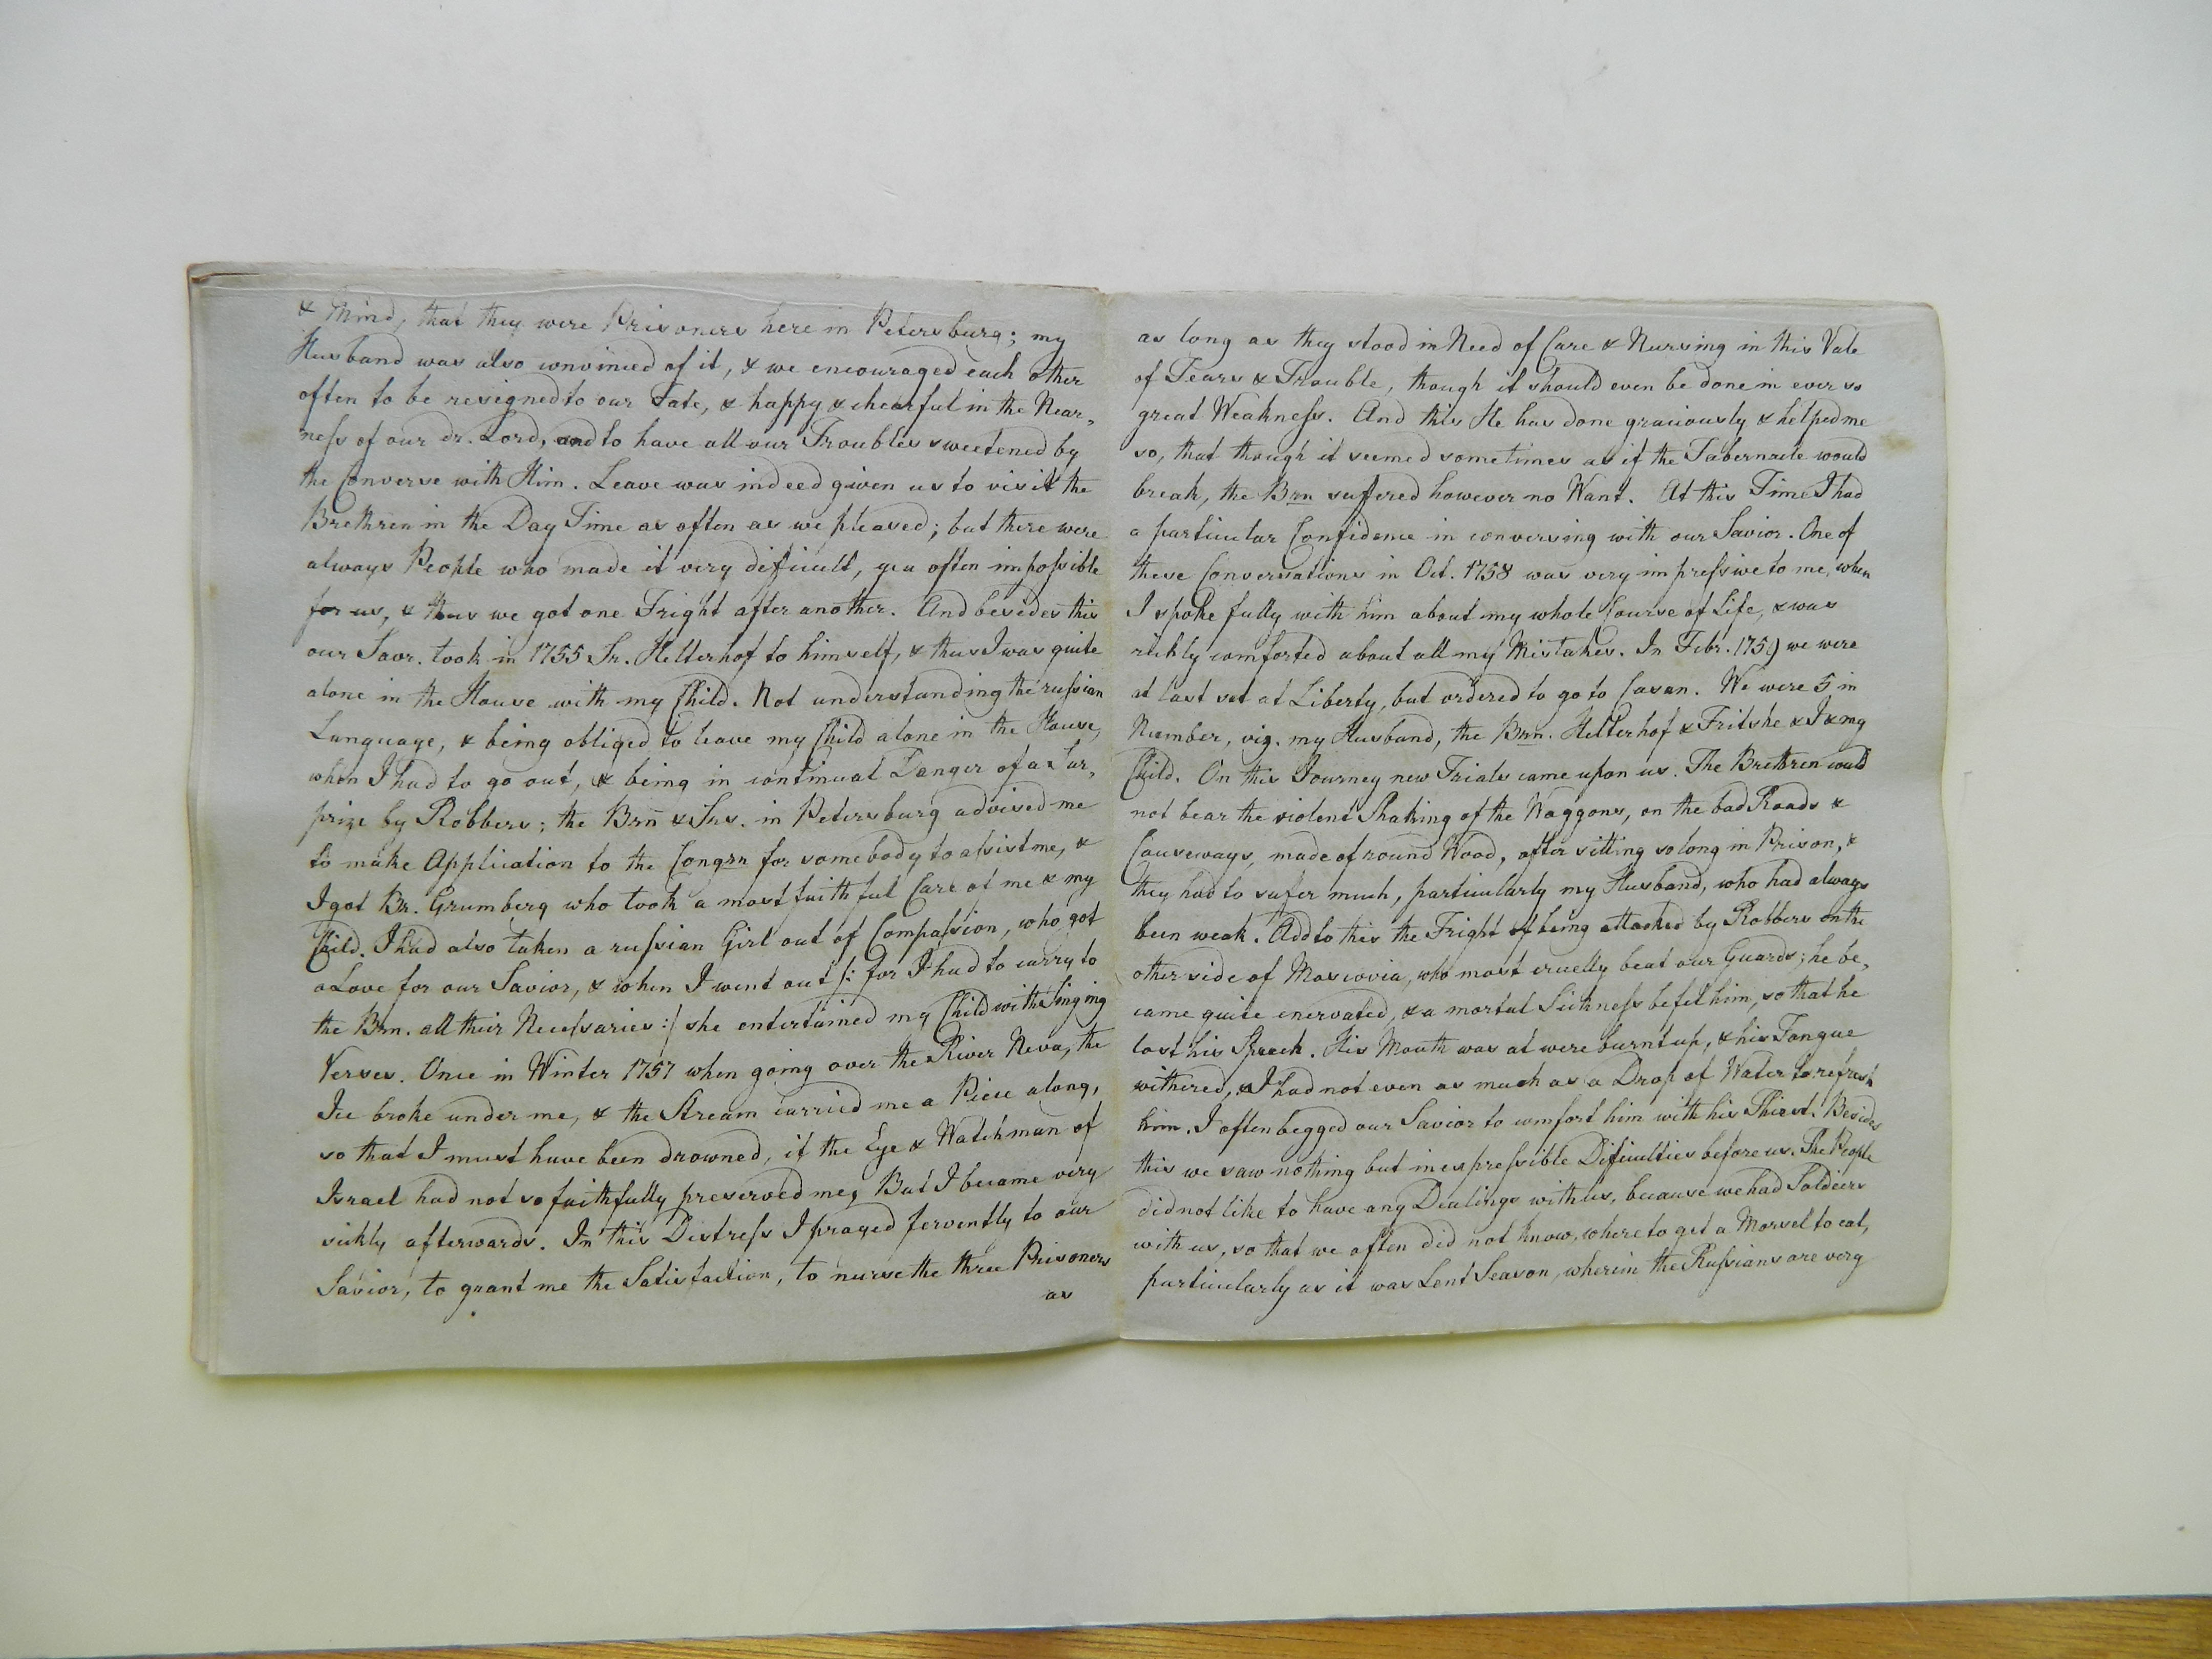 & Mind, that they were Prisoners here in Petersburg; my
Husband was also convinced of it, & we encouraged each other
often to be resigned to our Fate, & happy & chearful in the Near,
ness of our dr. Lord, and to have all our Troubles sweetened by
the Converse with Him. Leave was indeed given us to visit the
Brethren in the Day Time as often as we pleased; but there were
always People who made it very dificult, yea often impossible
for us, & thus we got one Fright after another. And besides this
our Savr. took in 1755 Sr. Helterhof to himself, & thus I was quite
alone in the House with my Child. Not understanding the russian
Language, & being obliged to leave my Child alone in the House,
when I had to go out, & being in continual Danger of a Sur,
prize by Robbers; the Brn & Srs. in Petersburg advised me
to make Application to the Congrn for somebody to assist me, &
I got Br. Grumberg who took a most faithful Care of me & my
Child. I had also taken a russian Girl out of Compassion, who got
a Love for our Savior, & when I went out /: for I had to carry to
the Brn. all their Necessaries :/ she entertained my Child with Singing
Verses. Once in Winter 1757 when going over the River Neva, the
Ice broke under me, & the Stream carried me a Piece along,
so that I must have been drowned, if the Eye & Watchman of
Israel had not so faithfully preserved me, But I became very
sickly afterwards. In this Distress I prayed fervently to our
Savior, to grant me the Satisfaction, to nurse the three Prisoners
as
as long as they stood in Need of Care & Nursing in this Vale
of Tears & Trouble, though it should even be done in ever so
great Weakness. And this He has done graciously & helped me
so, that though it seemed sometimes as if the Tabernacle would
break, the Brn suffered however no Want. At this Time I had
a particular Confidence in conversing with our Savior. One of
these Conversations in Oct. 1758 was very impressive to me, when
I spoke fully with him about my whole Course of Life, & was
richly comforted about all my Mistakes. In Febr. 1759 we were
at last set at Liberty, but ordered to go to Casan. We were 5 in
Number, viz. my Husband, the Brn. Helterhof & Fritshe & I & my
Child. On this Journey new Trials came upon us. The Brethren could
not bear the violent Shaking of the Waggons, on the bad Roads &
Causeways, made of round Wood, after sitting so long in Prison, &
they had to sufer much, particularly my Husband, who had always
been weak. Add to this the Fright of being attacked by Robbers on the
other side of Moscovia, who most cruelly beat our Guards; he be,
came quite enervated, & a mortal Sickness befel him, so that he
lost his Speech. His Mouth was at were burnt up, & his Tongue
withered, & I had not even as much as a Drop of Water to refresh
him. I often begged our Savior to comfort him with his Thirst. Besides
this we saw nothing but inexpressible Dificulties before us. The People
did not like to have any Dealings with us, because we had Soldiers
with us, so that we often did not know, where to get a Morsel to eat,
particularly as it was Lent Season, wherein the Russians are very